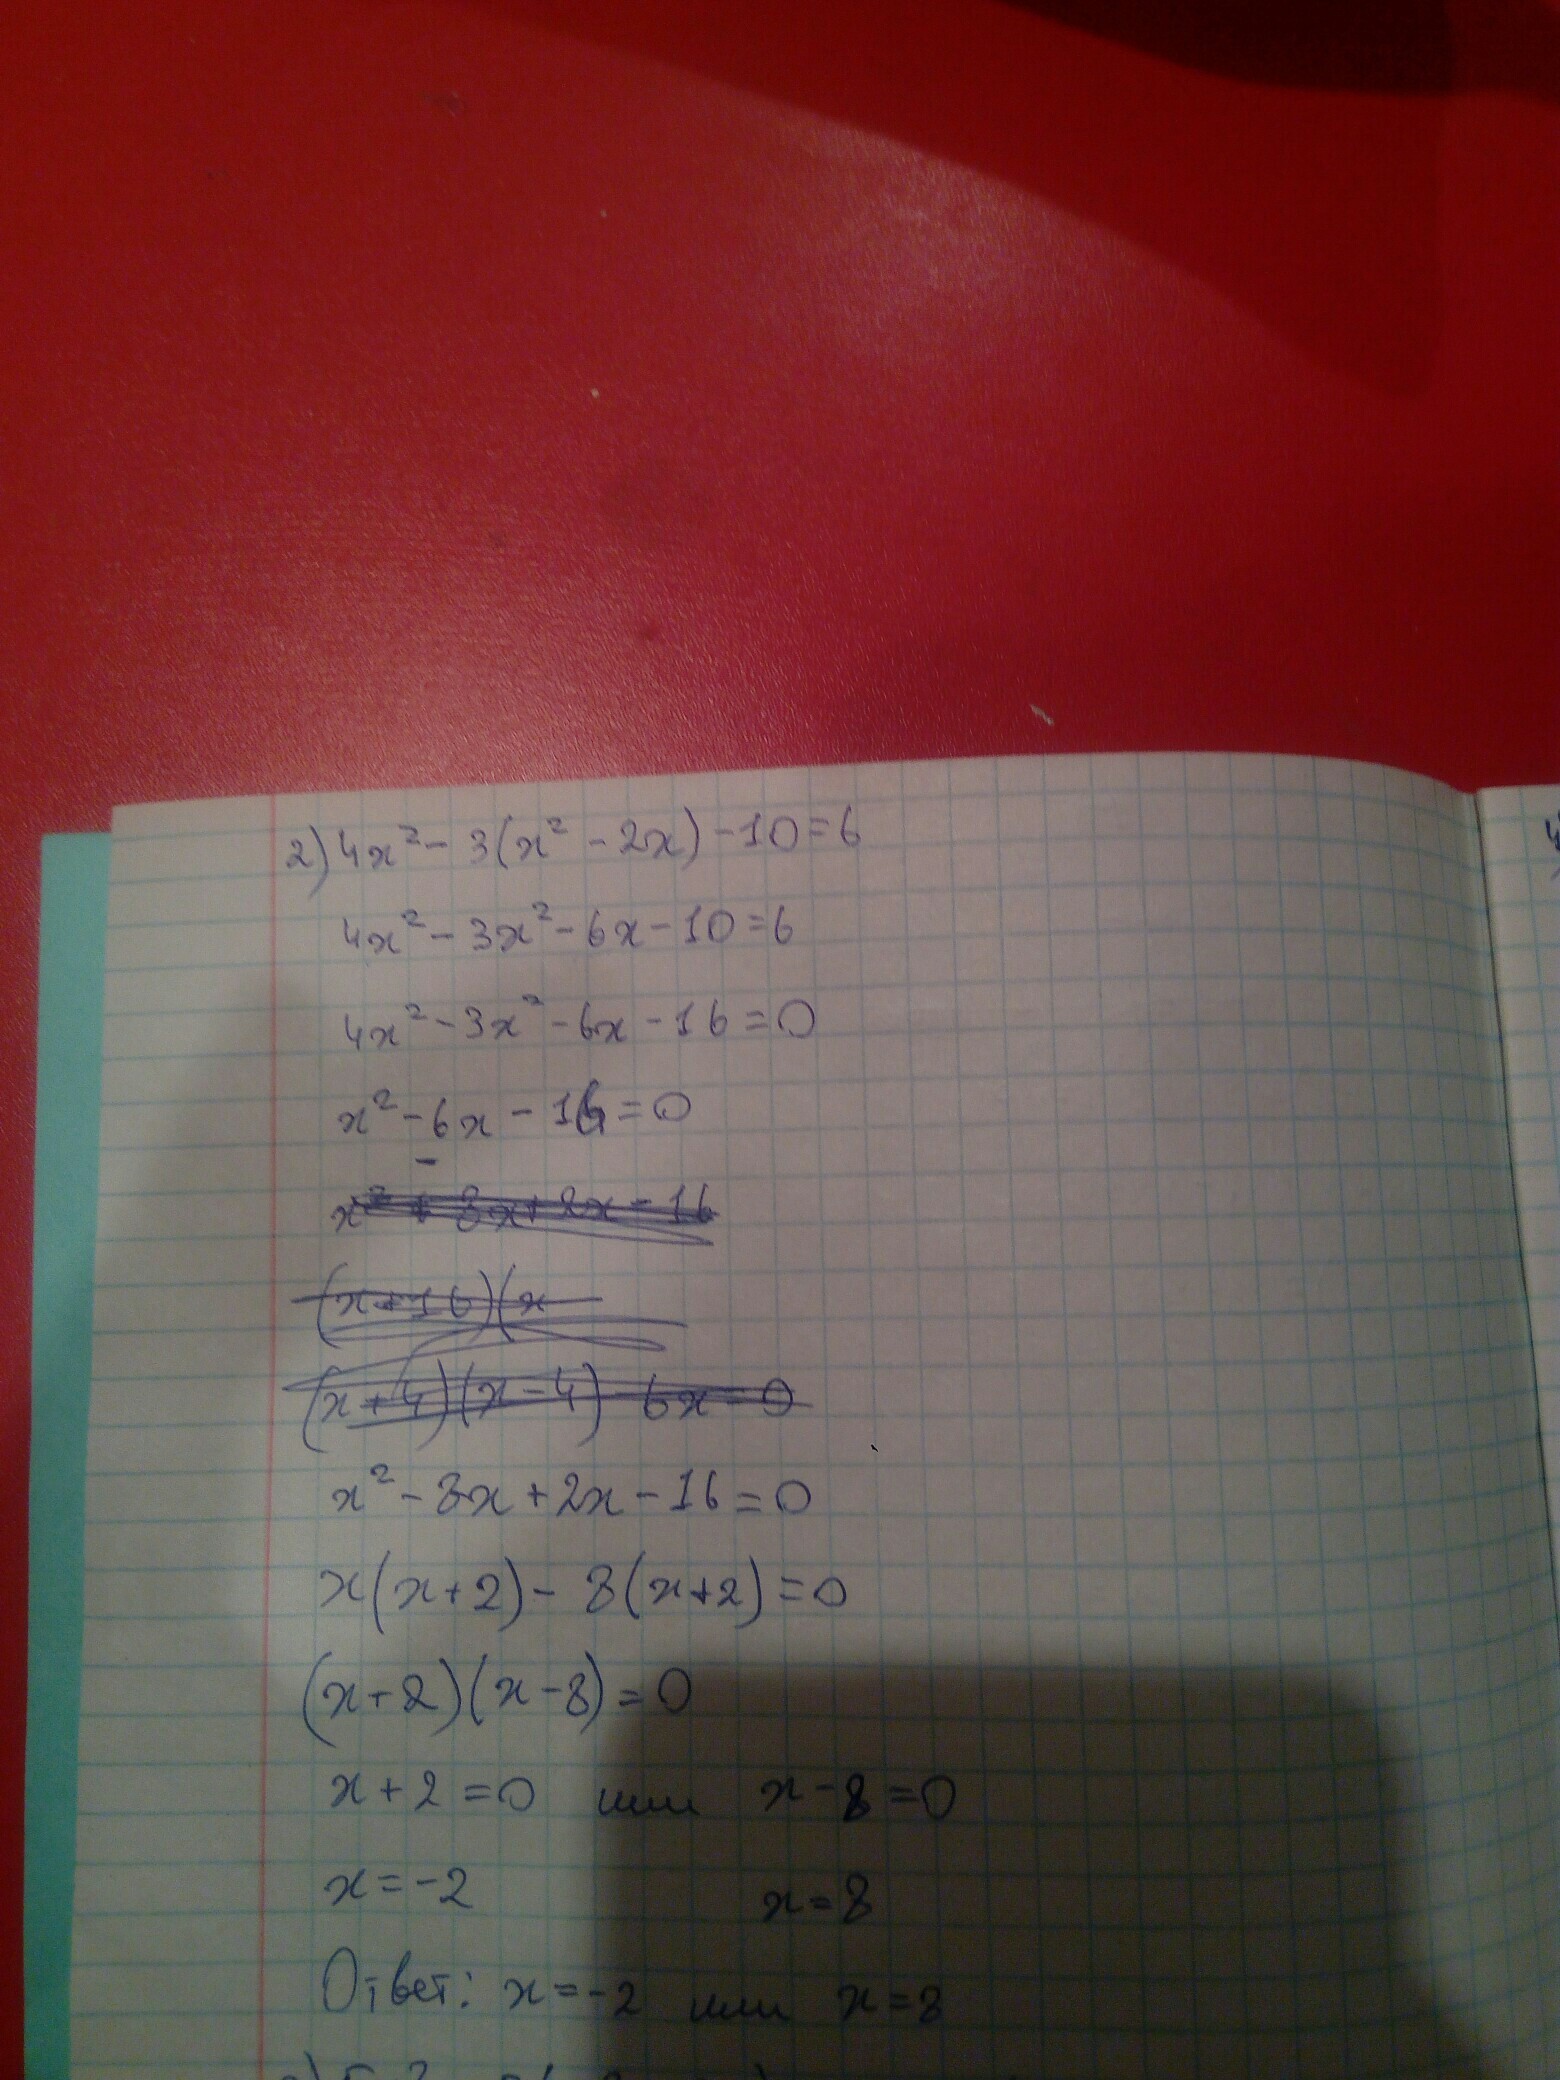 2) 4x² - 3(x² - 2x) - 10 = 6
4x² - 3x² - 6x - 10 = 6
4x² - 3x² - 6x - 16 = 0
x² - 6x - 16 = 0
x² + 8x + 2x - 16
(x+16)(x
(x+4)(x-4) - 6x = 0
x² - 8x + 2x - 16 = 0
x(x+2) - 8(x+2) = 0
(x+2)(x-8) = 0
x + 2 = 0 или x - 8 = 0
x = -2 x = 8
Ответ: x = -2 или x = 8